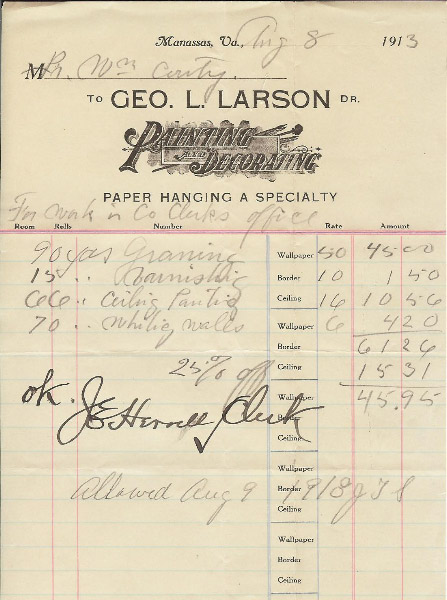 Manassas, Va., Aug 8 1913
M Pr. Wm County.
TO GEO. L. LARSON DR.
PAINTING AND DECORATING
PAPER HANGING A SPECIALTY
For work in Co Clerks office
Room Rolls Number Rate Amount
90 yds Graining Wallpaper 50 45 00
15 " " Varnishing Border 10 1 50
66 " " Ceiling Painted Ceiling 16 10 56
70 " " Whiting walls Wallpaper 6 4 20
Border 61 26
25% off Ceiling 15 31
Wallpaper 45.95
ok. J E Herrell Clerk
Border
Ceiling
Wallpaper
Allowed Aug 9 Border 1913
Ceiling
Wallpaper
Border
Ceiling